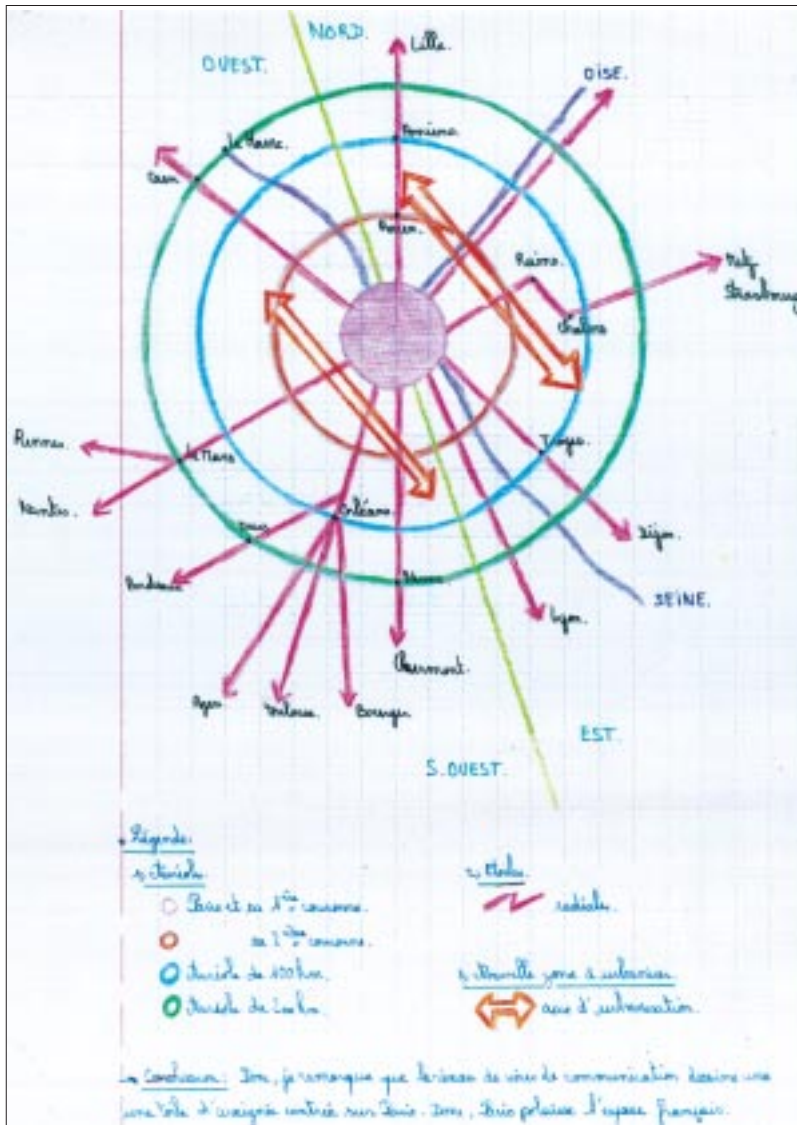 NORD.
OUEST.
Lille
OISE.
Le Havre.
Amiens
Caen
Rouen.
Reims.
Metz
Strasbourg
Chalons
Rennes.
Le Mans
Troyes
Nantes.
Orléans
Tours
Dijon
Bordeaux
Nevers
SEINE.
Lyon
Clermont
Agen
Toulouse
Bourges
EST.
S. OUEST.
Légende:
1) Auréole
2) Etoile
Paris et sa 1ère couronne.
radiale.
sa 2ème couronne.
Auréole de 100 km.
3) Nouvelle zone à urbaniser
Auréole de 200 km.
axe d'urbanisation.
Conclusion: Donc, je remarque que le réseau de voies de communication dessine une
une toile d'araignée centrée sur Paris. Donc, Paris polarise l'espace français.